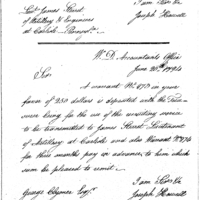 I am Sir &c
Joseph Howell
Lieut. James Sterret
of Artillery & Engineers
at Carlisle Pennsylv.
W. D. Accountants Office
June 20th 1794
Sir
A warrant No. in your
favor of 250 dollars is deposited with the Treas
urer being for the use of the recruiting service
to be transmitted to James Sterret Lieutenant
of Artillery at Carlisle and also Warrant No.
for three months pay in advance to him which
sum be pleased to remit
I am Sir &c
George Clymer Esqr.
Joseph Howell